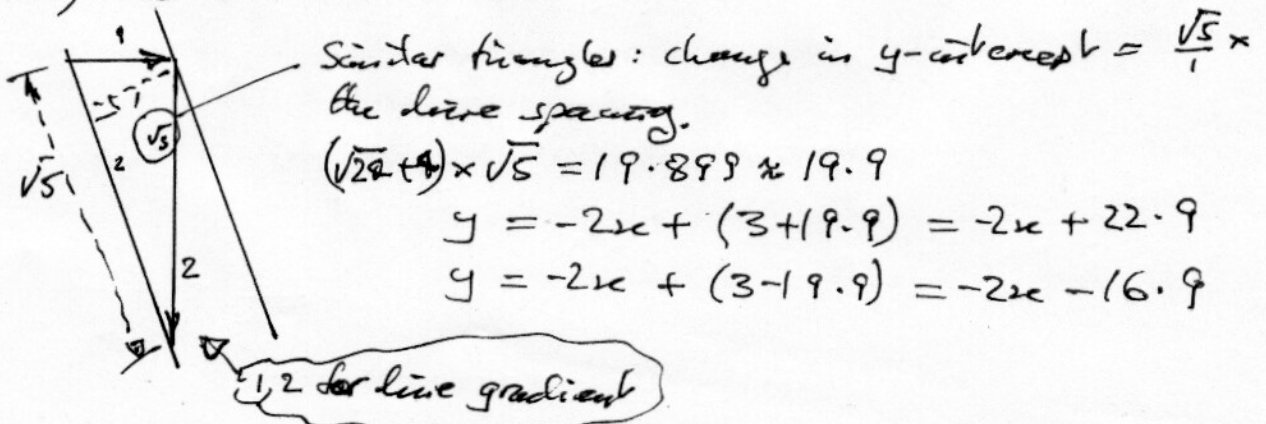 1
Similar triangles: change in y-intercept = √5/1 ×
the line spacing.
1
√5
2
√5
(√24+4)×√5 = 19.899 ≈ 19.9
y = -2x + (3+19.9) = -2x + 22.9
2
y = -2x + (3-19.9) = -2x - 16.9
1,2 for line gradient